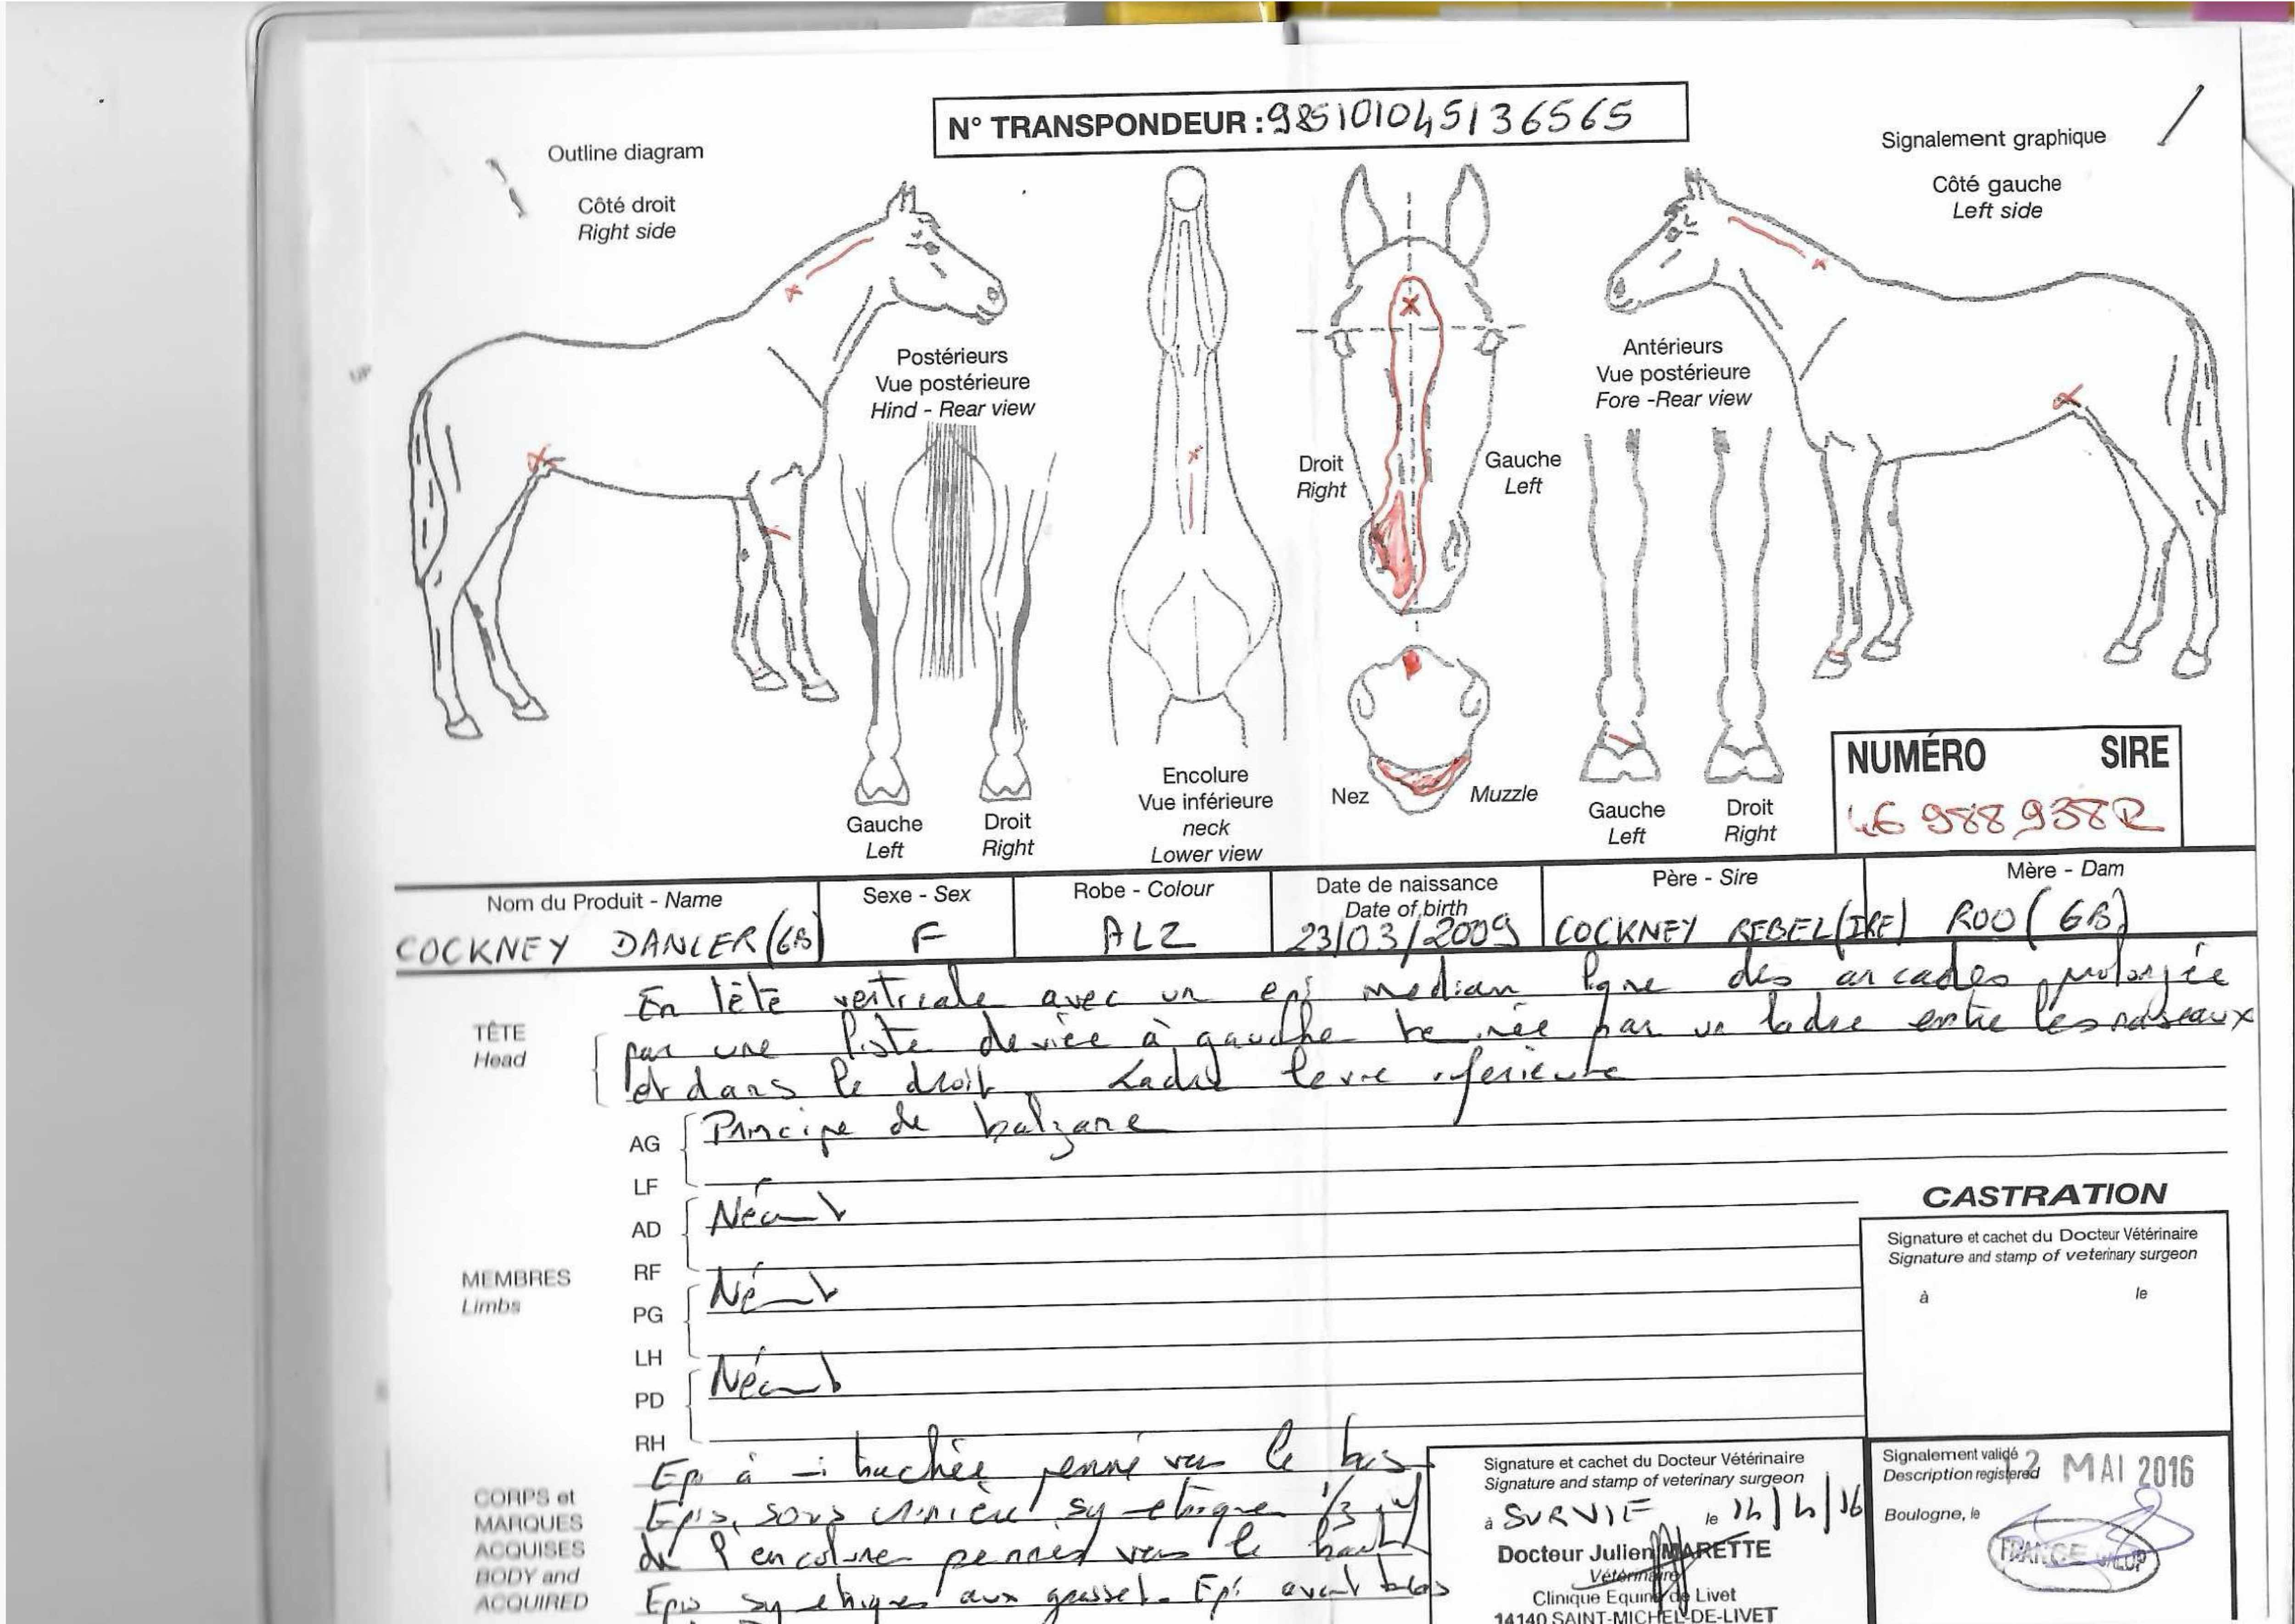 N° TRANSPONDEUR : 985101045136565
Outline diagram
Côté droit
Right side
Signalement graphique
Côté gauche
Left side
Postérieurs
Vue postérieure
Hind - Rear view
Antérieurs
Vue postérieure
Fore -Rear view
Droit
Right
Gauche
Left
Gauche
Left
Droit
Right
Encolure
Vue inférieure
neck
Lower view
Nez
Muzzle
Gauche
Left
Droit
Right
NUMÉRO SIRE
46 988 938R
Nom du Produit - Name
Sexe - Sex
Robe - Colour
Date de naissance
Date of birth
Père - Sire
Mère - Dam
COCKNEY DANCER (GB) F ALZ 23/03/2009 COCKNEY REBEL (IRE) ROO (GB)
TÊTE
Head
En tête verticale avec un epi median ligne des arcades prolongée
par une liste deviée à gauche par un ladre entre les naseaux
et dans le droit Ladre levre inferieure
AG
LF
Principe de balzane
AD
RF
Néant
MEMBRES
Limbs
PG
LH
Néant
PD
RH
Néant
CORPS et
MARQUES
ACQUISES
BODY and
ACQUIRED
Epi à mi trachée penné vers le bas
Epis sous crinière symetriques 1/3
de l'encolure pennés vers le haut
Epis symetriques aux grasset. Epi avant bras
CASTRATION
Signature et cachet du Docteur Vétérinaire
Signature and stamp of veterinary surgeon
à le
Signature et cachet du Docteur Vétérinaire
Signature and stamp of veterinary surgeon
à SURVIE le 14/4/16
Docteur Julien MARETTE
Vétérinaire
Clinique Equine de Livet
14140 SAINT-MICHEL-DE-LIVET
Signalement validé
Description registered
12 MAI 2016
Boulogne, le
FRANCE GALOP